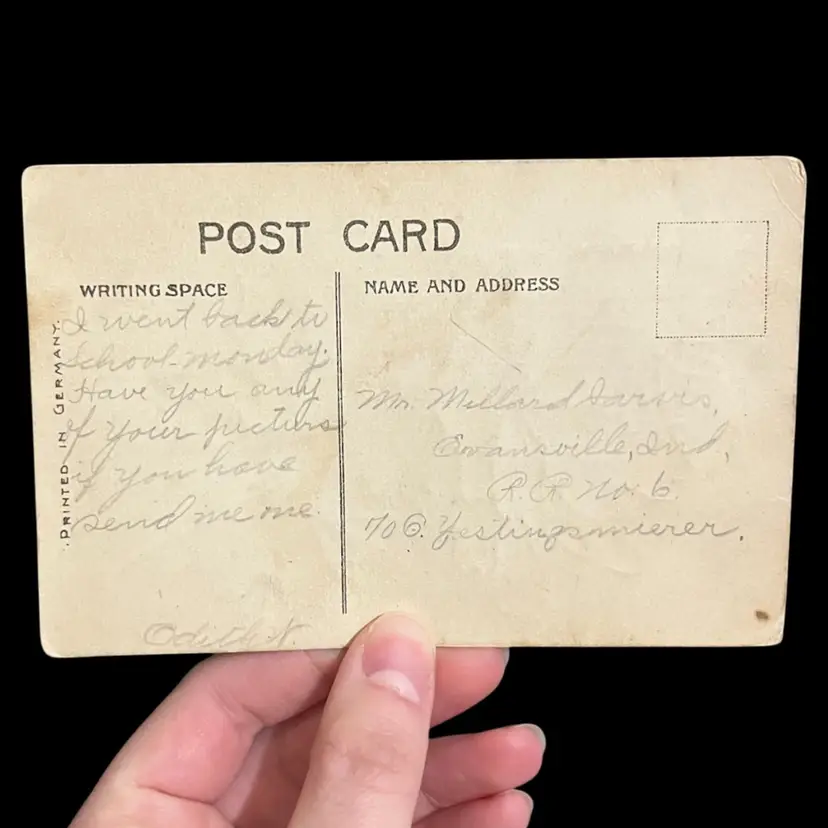 POST CARD
WRITING SPACE
I went back to
School monday.
Have you any
of your picturs
if you have
send me one.
Edith N.
NAME AND ADDRESS
Mr. Millard Jarvis,
Evansville, Ind,
R. R. No. 6.
PRINTED IN GERMANY.